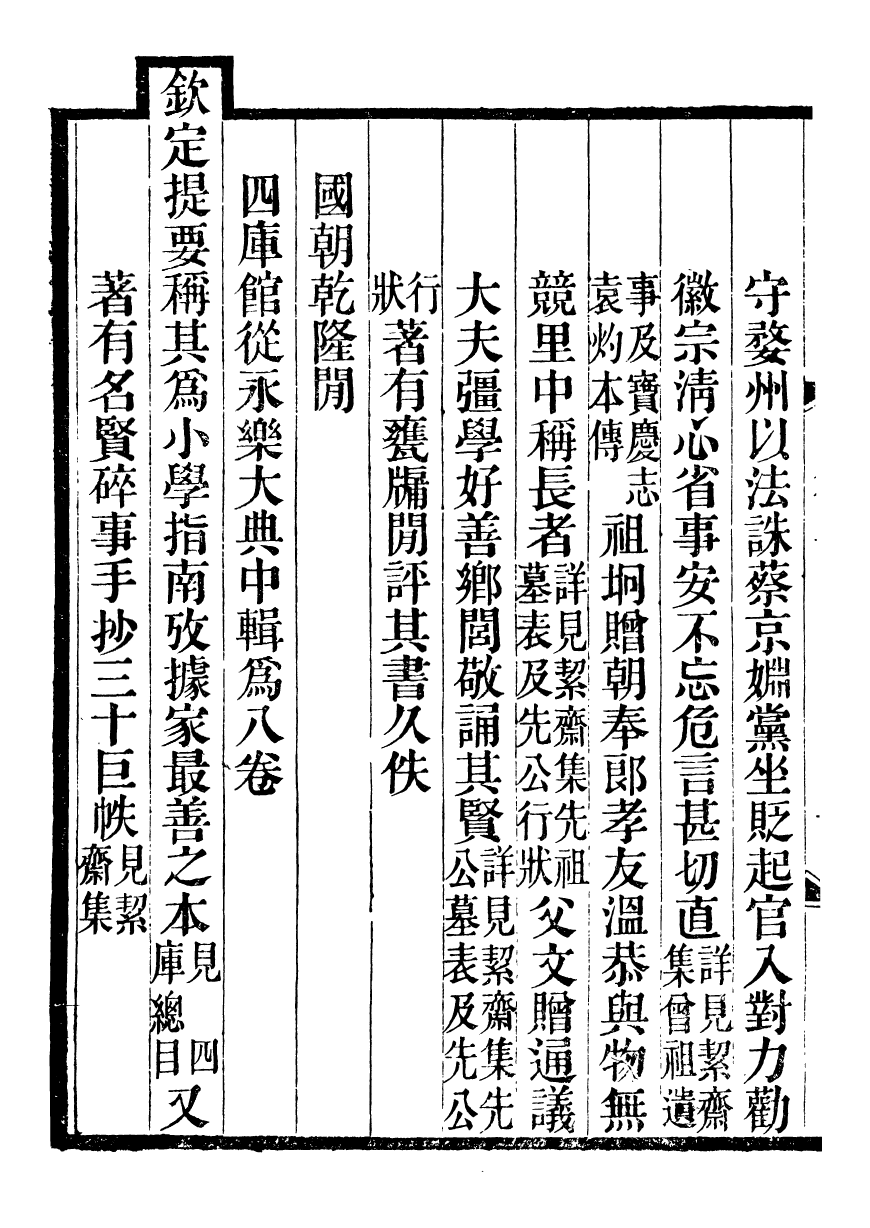 守婺州以法誅蔡京婣黨坐貶起官入對力勸
徽宗淸心省事安不忘危言甚切直詳見絜齋集曾祖遺
事及寶慶志袁灼本傳祖坰贈朝奉郎孝友溫恭與物無
競里中稱長者詳見絜齋集先祖墓表及先公行狀父文贈通議
大夫彊學好善鄉閭敬誦其賢詳見絜齋集先公墓表及先公
行狀著有甕牖閒評其書久佚
國朝乾隆閒
四庫館從永樂大典中輯爲八卷
欽定提要稱其爲小學指南攷據家最善之本見四庫總目又
著有名賢碎事手抄三十巨帙見絜齋集